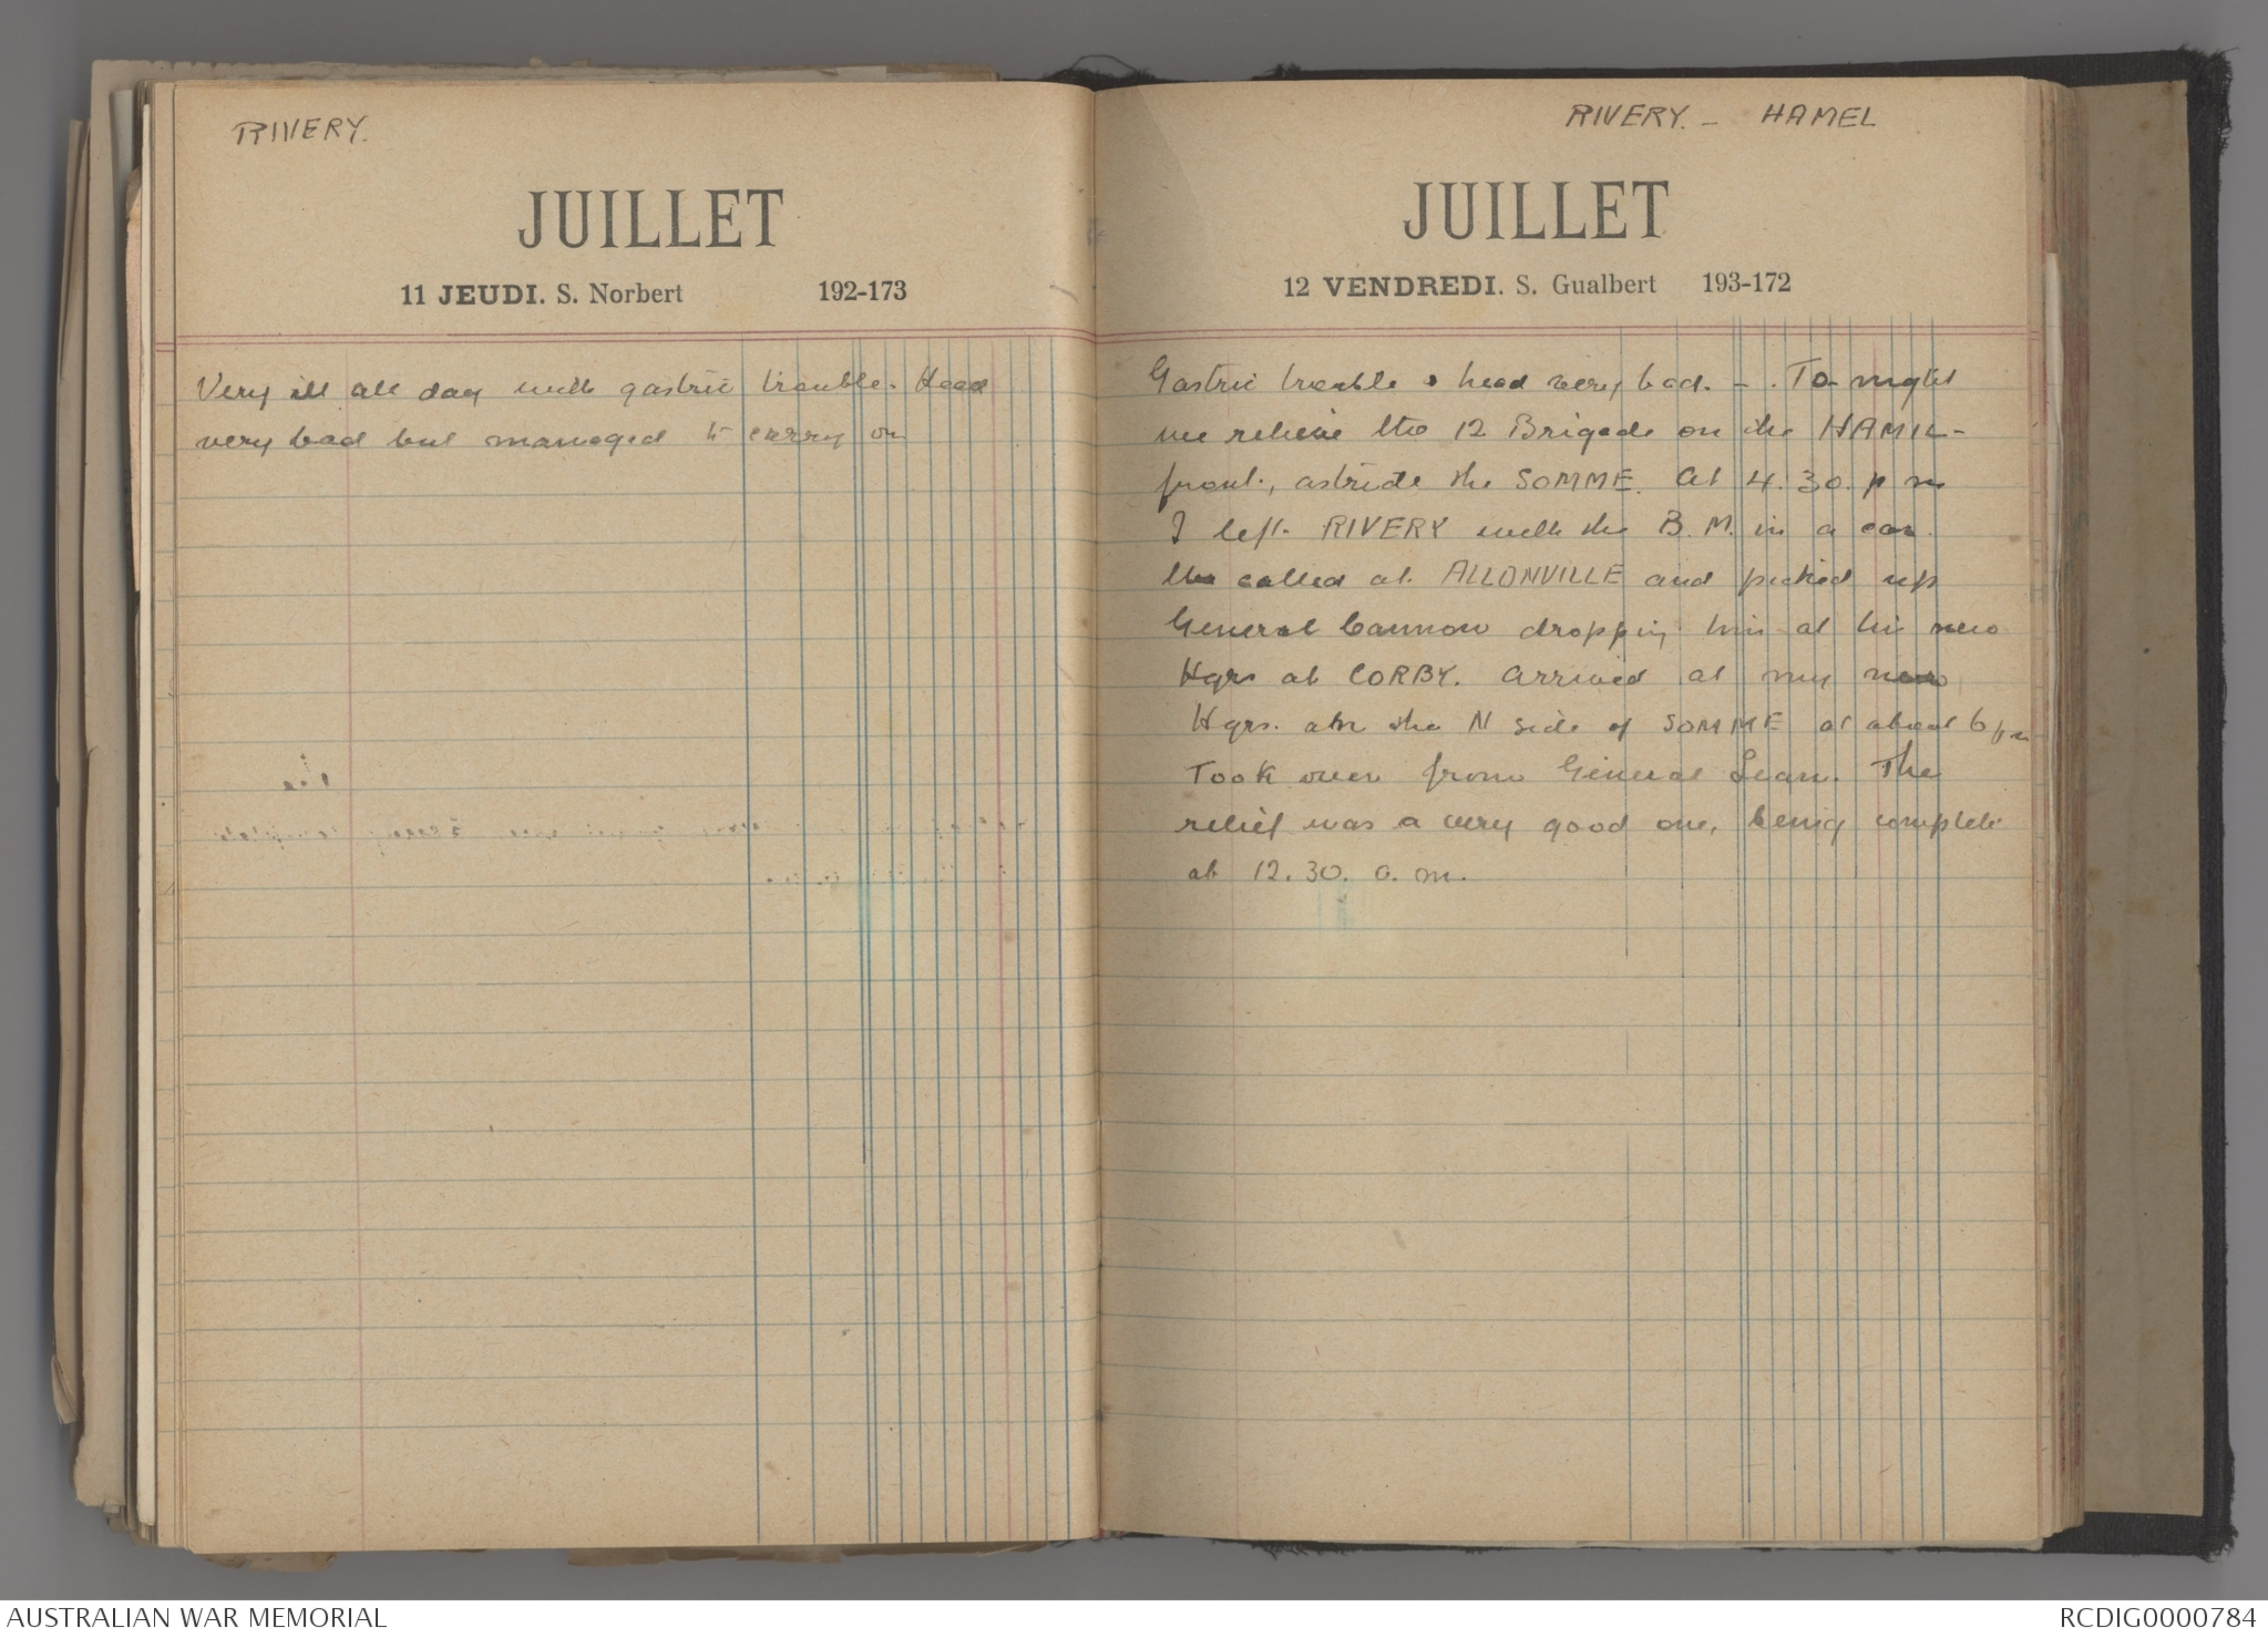 RIVERY.
JUILLET
11 JEUDI. S. Norbert 192-173
Very ill all day with gastric trouble. Head
very bad but managed to carry on
RIVERY. - HAMEL
JUILLET
12 VENDREDI. S. Gualbert 193-172
Gastric trouble & head very bad. - . To-night
we relieve the 12 Brigade on the HAMEL-
front, astride the SOMME. At 4.30. p m
I left RIVERY with the B. M. in a car.
We called at ALLONVILLE and picked up
General Cannon dropping him at his new
Hqrs at CORBY. Arrived at my new
Hqrs. on the N side of SOMME at about 6 pm
Took over from General Lean. The
relief was a very good one, being complete
at 12.30. a. m.
AUSTRALIAN WAR MEMORIAL
RCDIG0000784